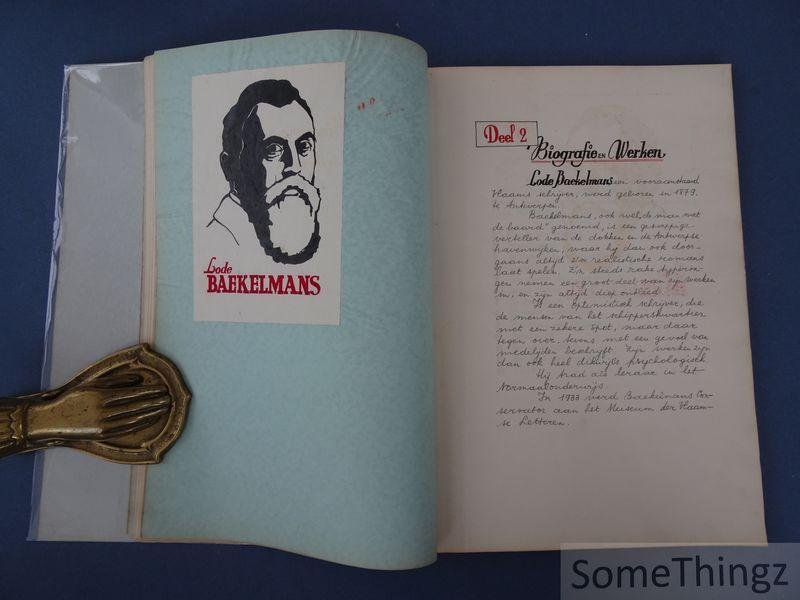 Lode
BAEKELMANS
Deel 2
Biografie EN Werken
Lode Baekelmans een vooraanstaand
Vlaams schrijver, werd geboren in 1879.
te Antwerpen.
Baekelmans, ook wel "de man met
de baard" genoemd, is een geestige
verteller van de dokken en de Antwerpse
havenwijken, waar hij dan ook door-
gaans altijd zijn realistische romans
laat spelen. Zijn steeds rake typerin-
gen nemen een groot deel van zijn werken
in, en zijn altijd diep ontleed.
Is een optimistisch schrijver, die
de mensen van het schipperskwartier
met een zekere spot, maar daar
tegen over, tevens met een gevoel van
medelijden beschrijft. Zijn werken zijn
dan ook heel dikwijls psychologisch.
Hij trad als leraar in het
Normaalonderwijs.
In 1933 werd Baekelmans Con-
servator aan het Museum der Vlaam-
se Letteren.
SomeThingz